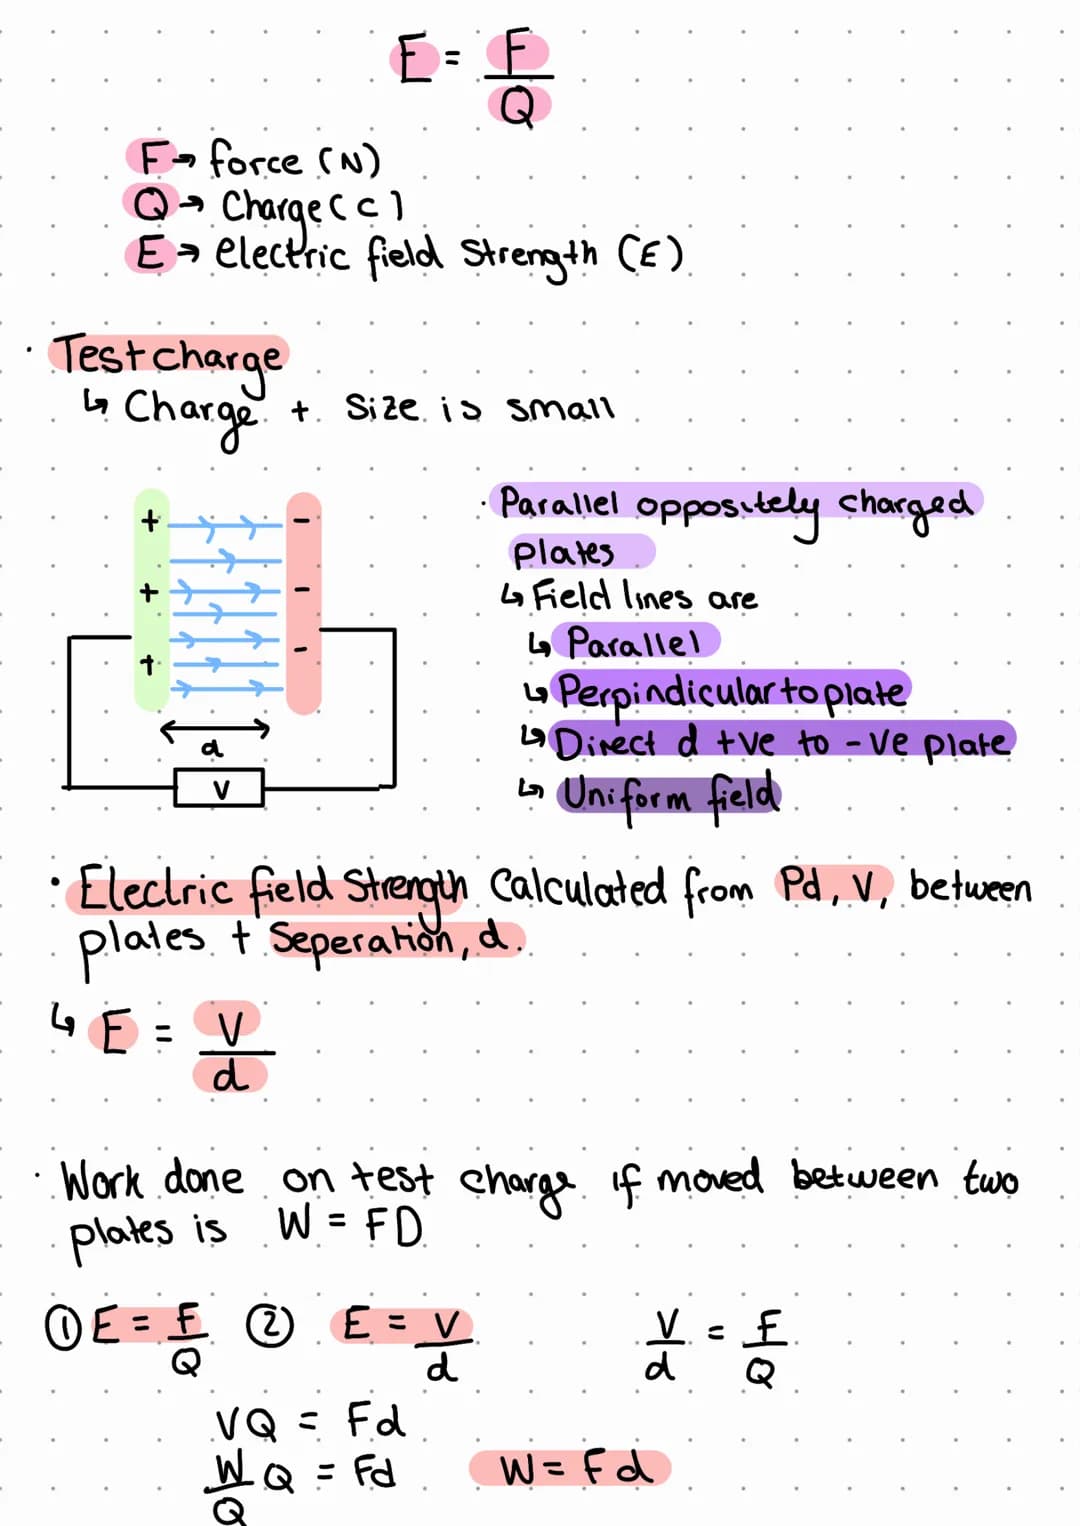 E = F/Q
F → force (N)
Q → Charge (c)
E → electric field Strength (E)
· Test charge
↳ Charge + Size is small
+ -
+ -
+ -
d
V
· Parallel oppositely charged
plates
↳ Field lines are
↳ Parallel
↳ Perpindicular to plate
↳ Direct d +ve to -ve plate
↳ Uniform field
· Electric field Strength Calculated from Pd, V, between
plates + Seperation, d.
↳ E = V/d
· Work done on test charge if moved between two
plates is W = FD
① E = F/Q ② E = V/d V/d = F/Q
VQ = Fd
W/Q Q = Fd W = Fd